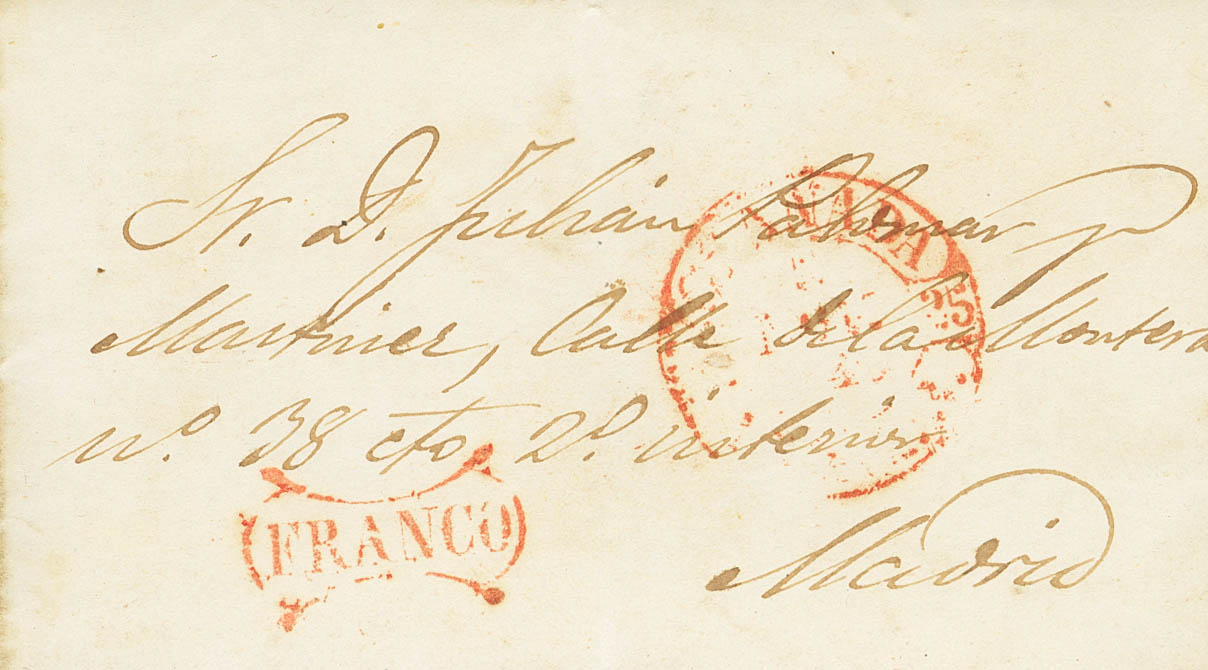 Sr. D. Julián Palomar y
Martinez, Calle de la Montera
nº. 38 cto. 2º. interior
Madrid
NADA
25
(FRANCO)